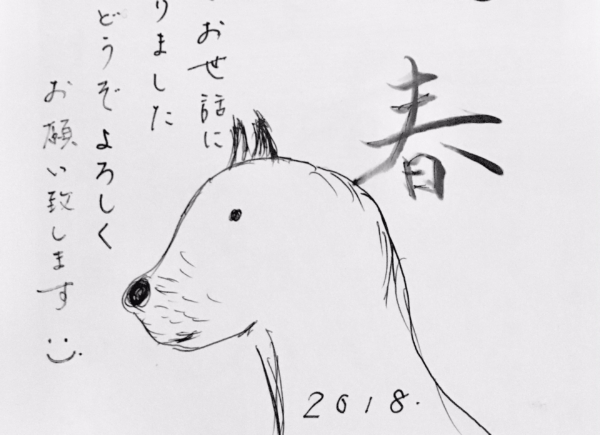 春
お世話に
りました
どうぞよろしく
お願い致します
2018.